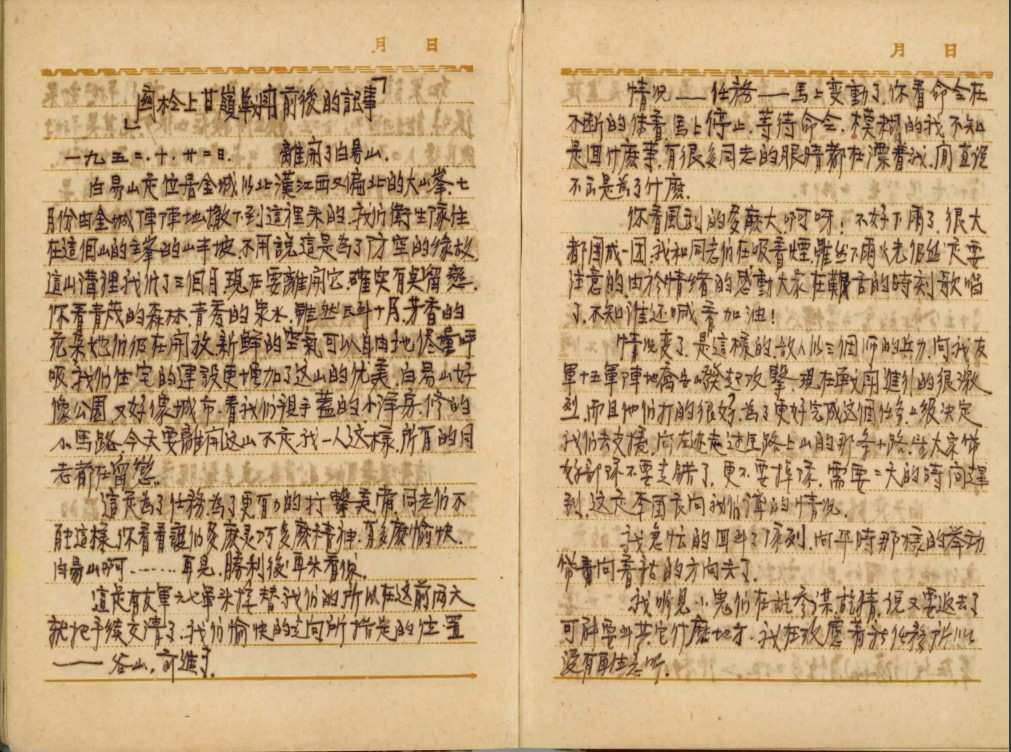 月 日
「安於上甘嶺戰鬥前後的記事」
一九五二.十.廿二日. 離開了白易山.
白易山是位居金城以北漢江西又偏北的大山峯.七
月份由金城陣陣地撤下到這裡來的.我們衛生隊住
在這個山的主峯的山半坡.不用說這是為了防空的緣故
這山溝裡我住了三個月.現在要離開它.確实有莫留戀.
你看青茂的森林青秀的泉水.雖然十月.芳香的
花菜她们仍在開放新鮮的空氣可以自由地侭量呼
吸.我们住宅的建設更增加了这山的优美.白易山好
像公園又好像城市.看我们親手蓋的小洋房.修的
小馬路.今天要離開这山不是我一人这樣.所有的同
志都在留戀.
這是為了任務為了更有力的打擊美帝同志们不
這樣.你看看誰们多麼灵巧多麼精神.有多麼愉快.
白易山啊……再見.勝利後再來看你.
這是有友軍六七軍來接替我们的.所以在这前两天
就把手續交清了.我们愉快的走向所指定的位置
——谷山.前進了.
月 日
情况——任務——馬上变動了.你看命令在
不断的傳着馬上停止.等待命令.模糊的我.不知
是回什麼事.有很多同志的眼睛都在漂着我.简直说
不出是為了什麼.
你看風刮的多麻大.啊呀!不好下雨了.很大
都围成一团.我和同志们在吸着煙.雖然下雨火光仍然是要
注意的.由於情緒的感動大家在的時刻歌唱
了.不知誰还喊着加油!
情况变了.是這樣的.故人以三個师的兵力.向我友
軍十五軍陣地發起攻擊.現在戰鬥進行的很激
烈.而且他们打的很好.為了更好完成这個任务上级决定
我们去支援.向左还走过里路上山的那条小路.望大家帶
好部隊不要走錯了.更不要掉隊.需要二天的時间達
到.这是李团長向我们講的情况.
我急忙的回到了隊列.向平時那樣的举动
帶着向着站的方向去了.
我听見小鬼们在說参謀.猜.说又要返去了
可能要到其它什麼地方.我在放應着我的任務所以
沒有再注意听.